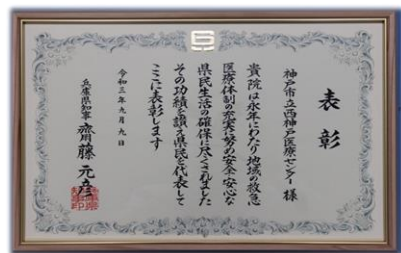 表彰
神戸市立西神戸医療センター 様
貴院は永年にわたり地域の救急
医療体制の充実に努め安全安心な
県民生活の確保に尽くされました
その功績を讃え県民を代表して
ここに表彰します
令和三年九月九日
兵庫県知事 齋藤元彦